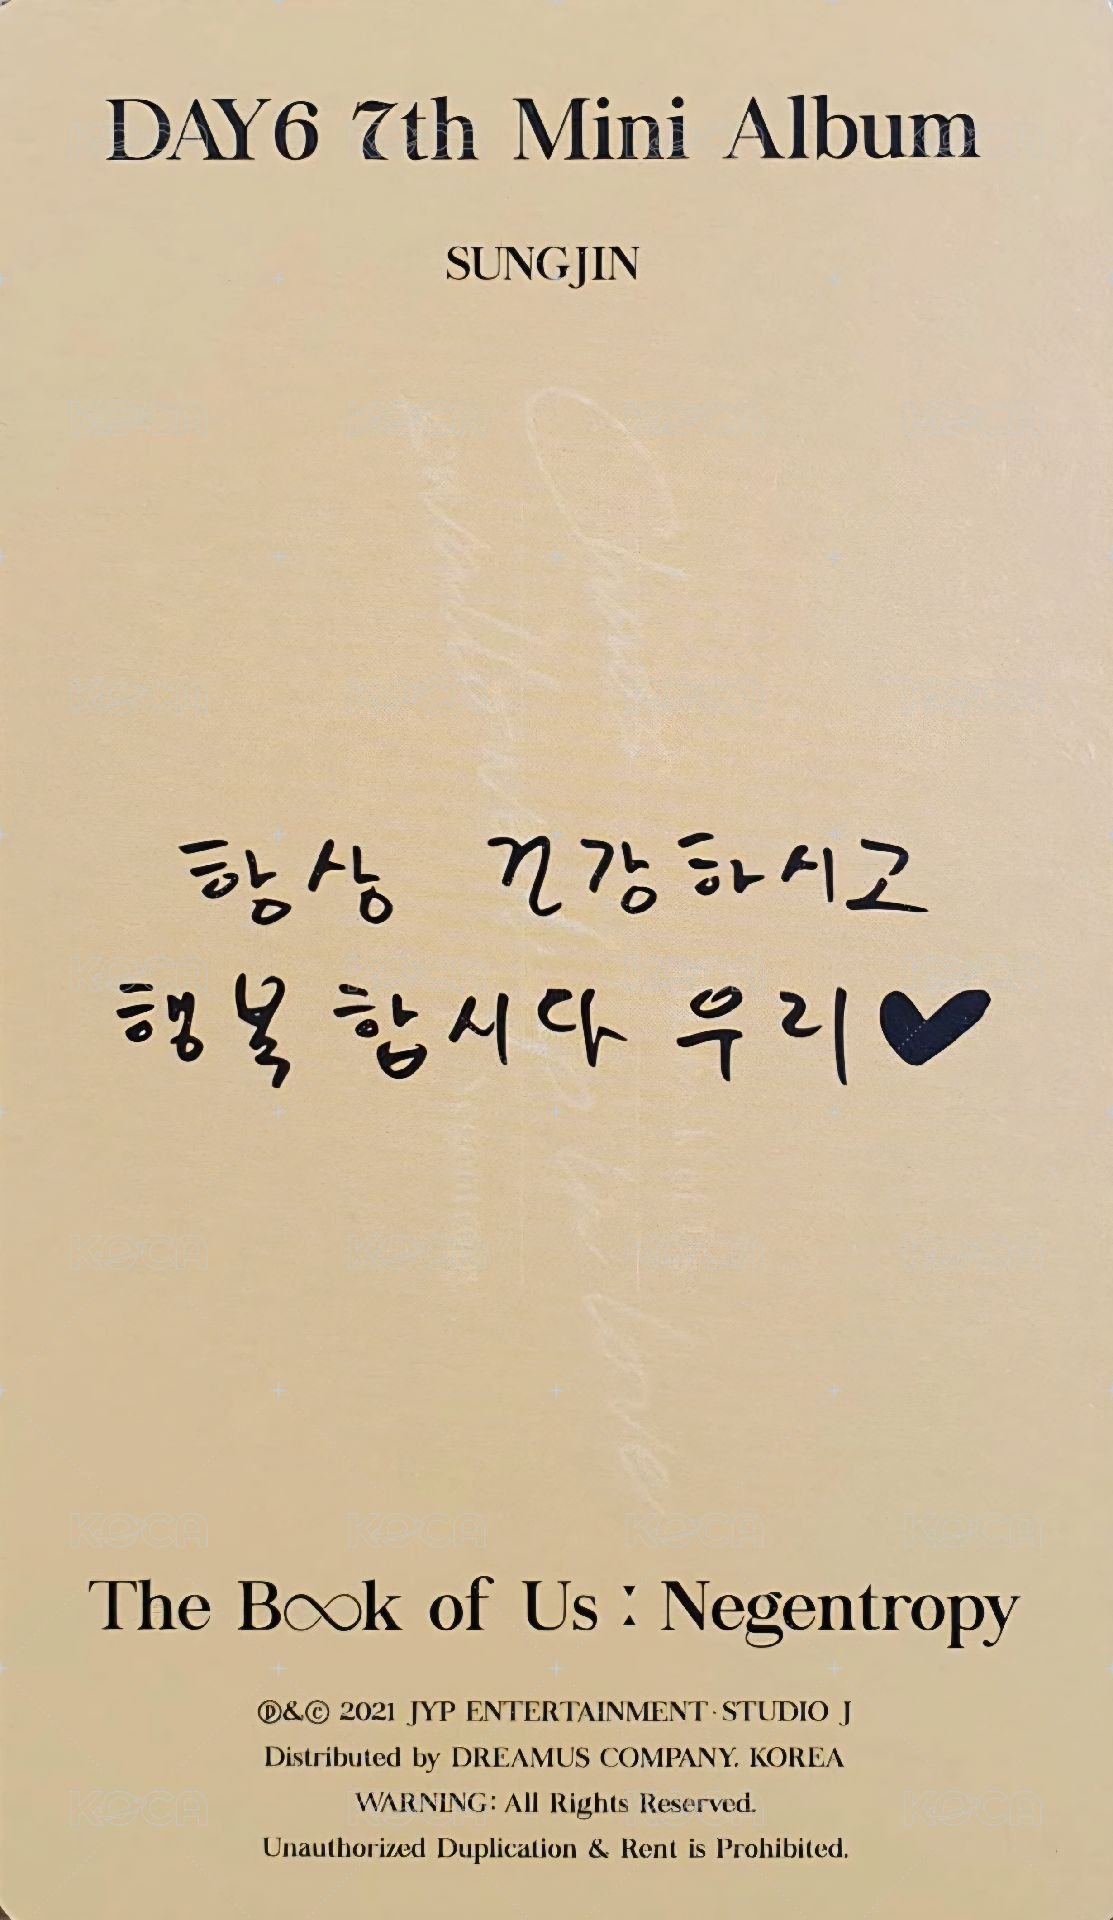 DAY6 7th Mini Album
SUNGJIN
항상 건강하시고
행복합시다 우리♥
The Book of Us : Negentropy
Ⓟ&© 2021 JYP ENTERTAINMENT·STUDIO J
Distributed by DREAMUS COMPANY. KOREA
WARNING: All Rights Reserved.
Unauthorized Duplication & Rent is Prohibited.
KOCA